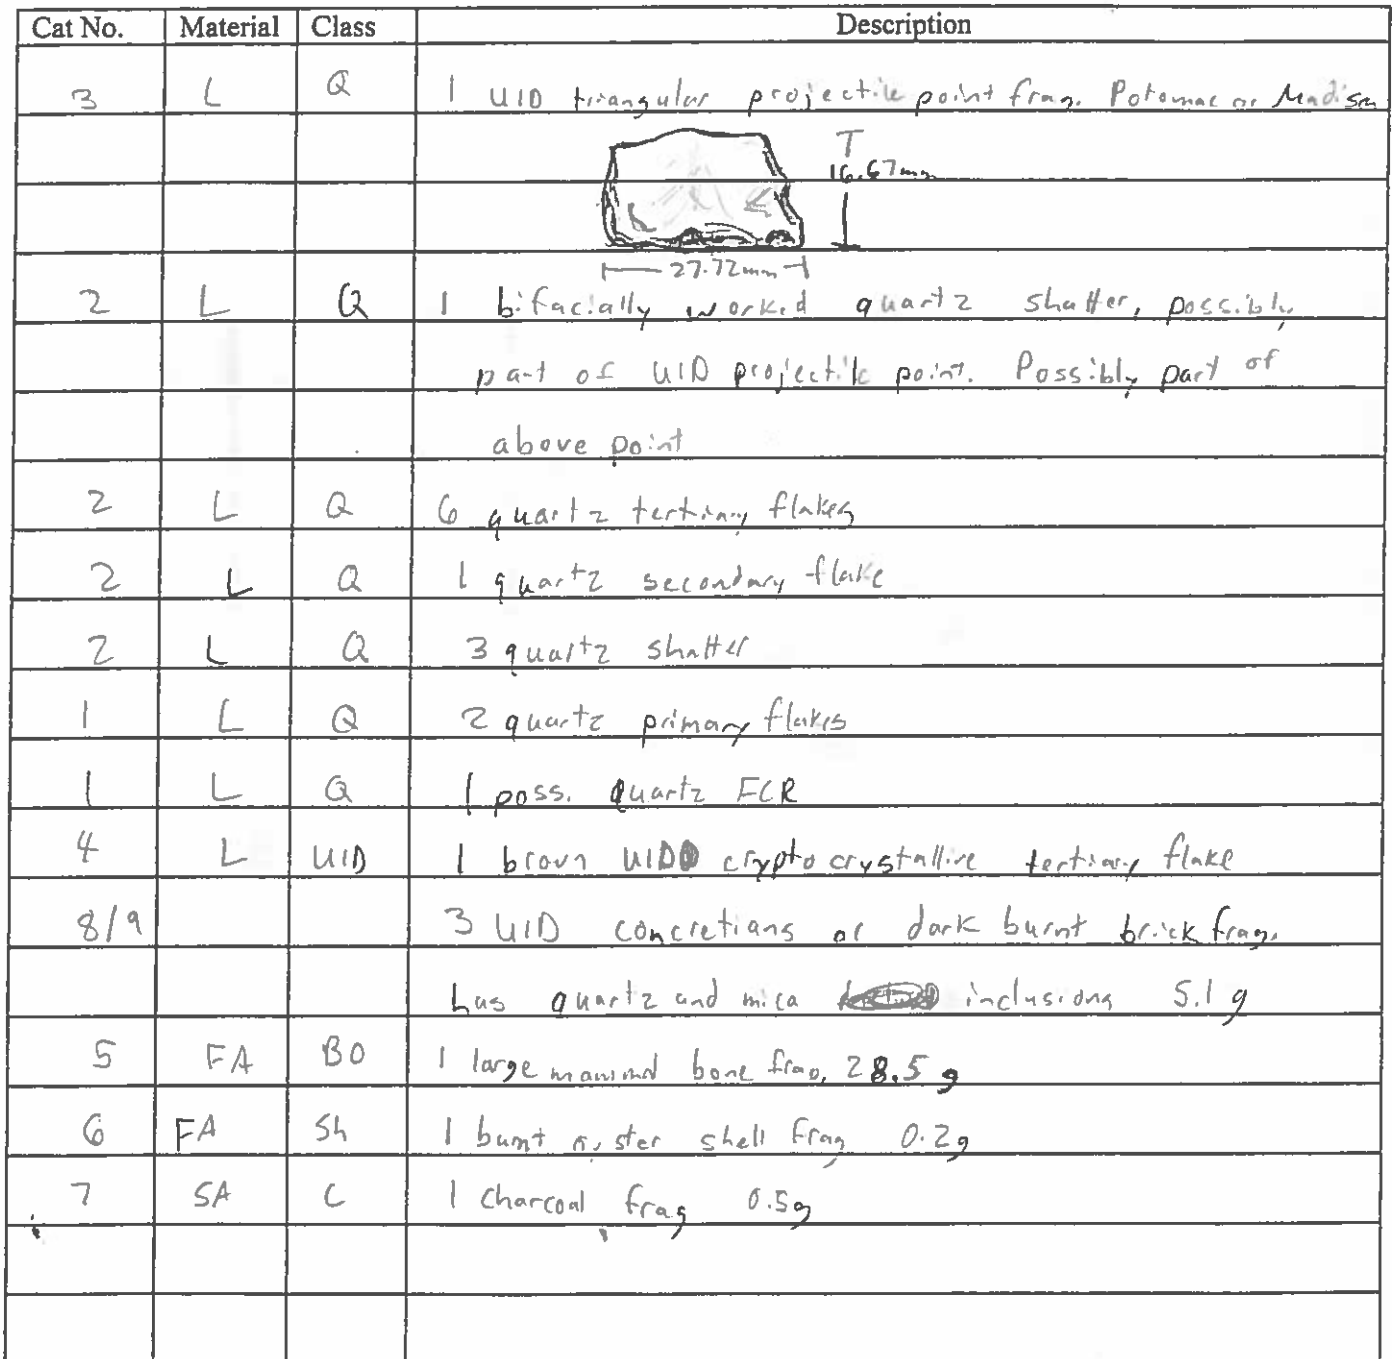 Cat No. Material Class Description
3 L Q 1 UID triangular projectile point frag. Potomac or Madison
T
16.67mm
27.72mm
2 L Q 1 bifacially worked quartz shatter, possibly
part of UID projectile point. Possibly part of
above point
2 L Q 6 quartz tertiary flakes
2 L Q 1 quartz secondary flake
2 L Q 3 quartz shatter
1 L Q 2 quartz primary flakes
1 L Q 1 poss. quartz FCR
4 L UID 1 brown UID cryptocrystalline tertiary flake
8/9 3 UID concretians or dark burnt brick frag.
has quartz and mica inclusions 5.1 g
5 FA BO 1 large mammal bone frag. 28.5 g
6 FA Sh 1 burnt oyster shell frag 0.2g
7 SA C 1 charcoal frag 0.5g